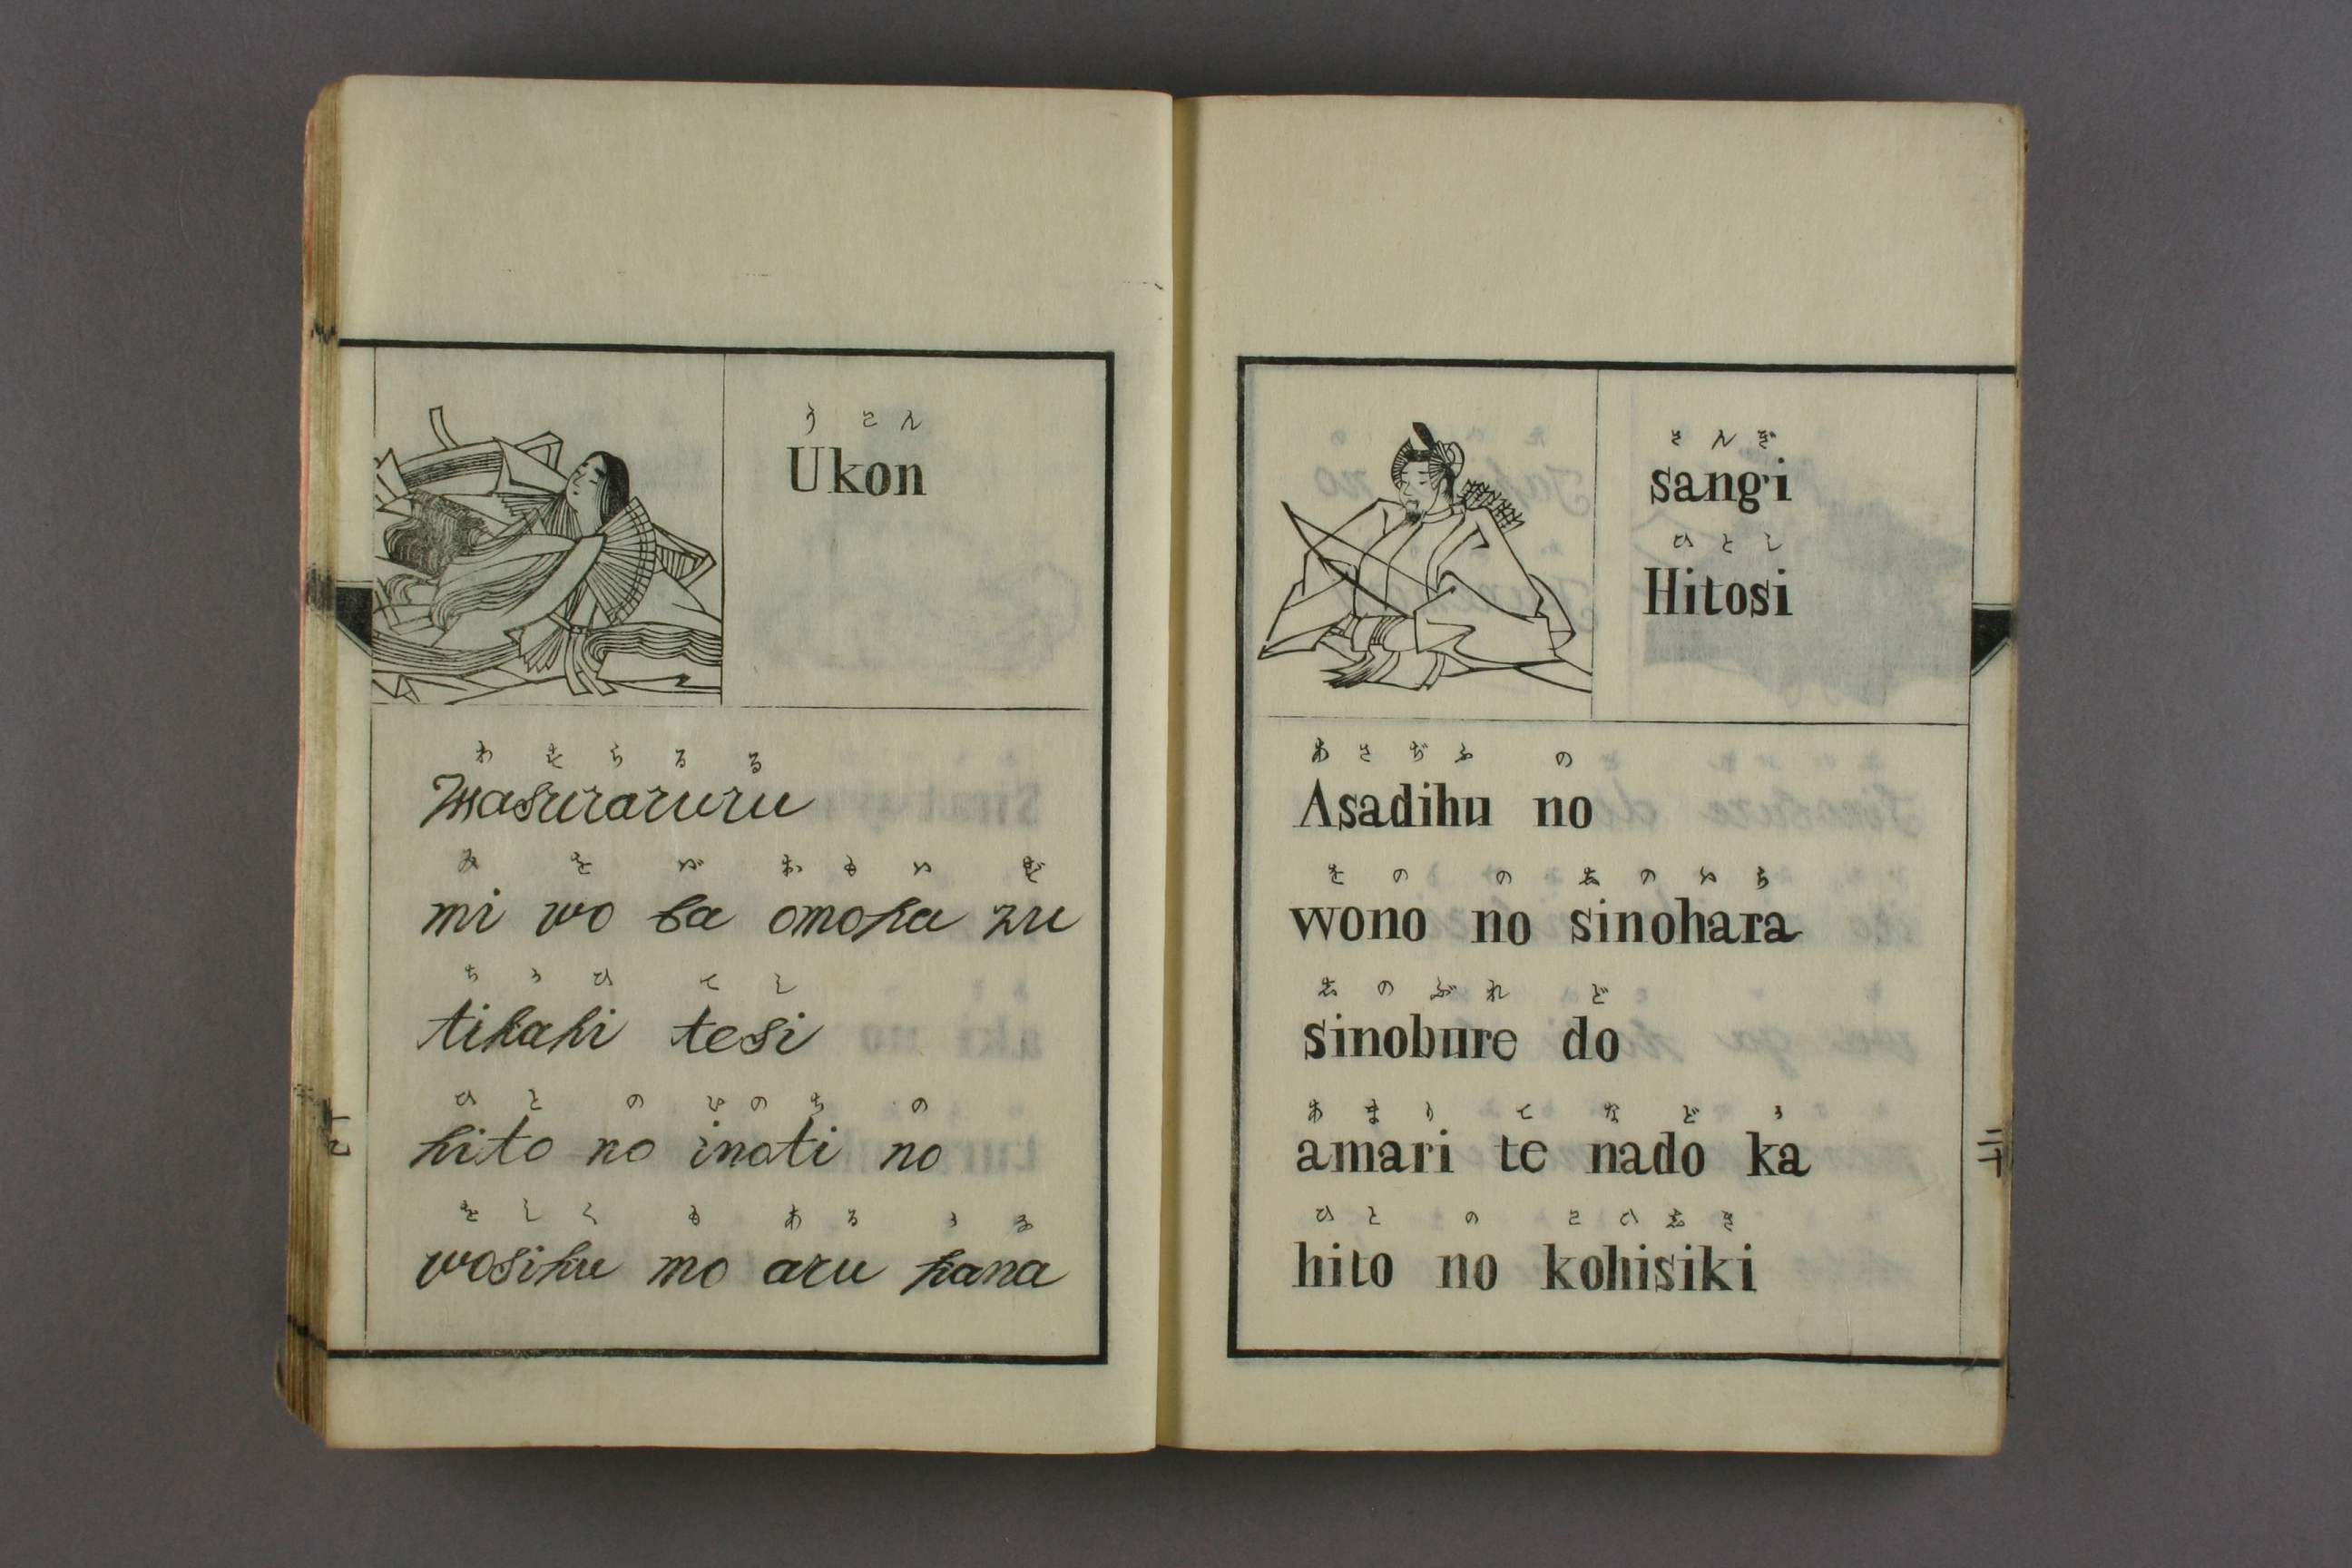 うこん
Ukon
わ す ら る る
Wasuraruru
み を ば お も は ず
mi wo ba omoha zu
ち か ひ て し
tikahi tesi
ひ と の い の ち の
hito no inoti no
を し く も あ る か な
wosiku mo aru kana
さ ん ぎ
sangi
ひ と し
Hitosi
あ さ ぢ ふ の
Asadihu no
を の の し の は ら
wono no sinohara
し の ぶ れ ど
sinobure do
あ ま り て な ど か
amari te nado ka
ひ と の こ ひ し き
hito no kohisiki
二十